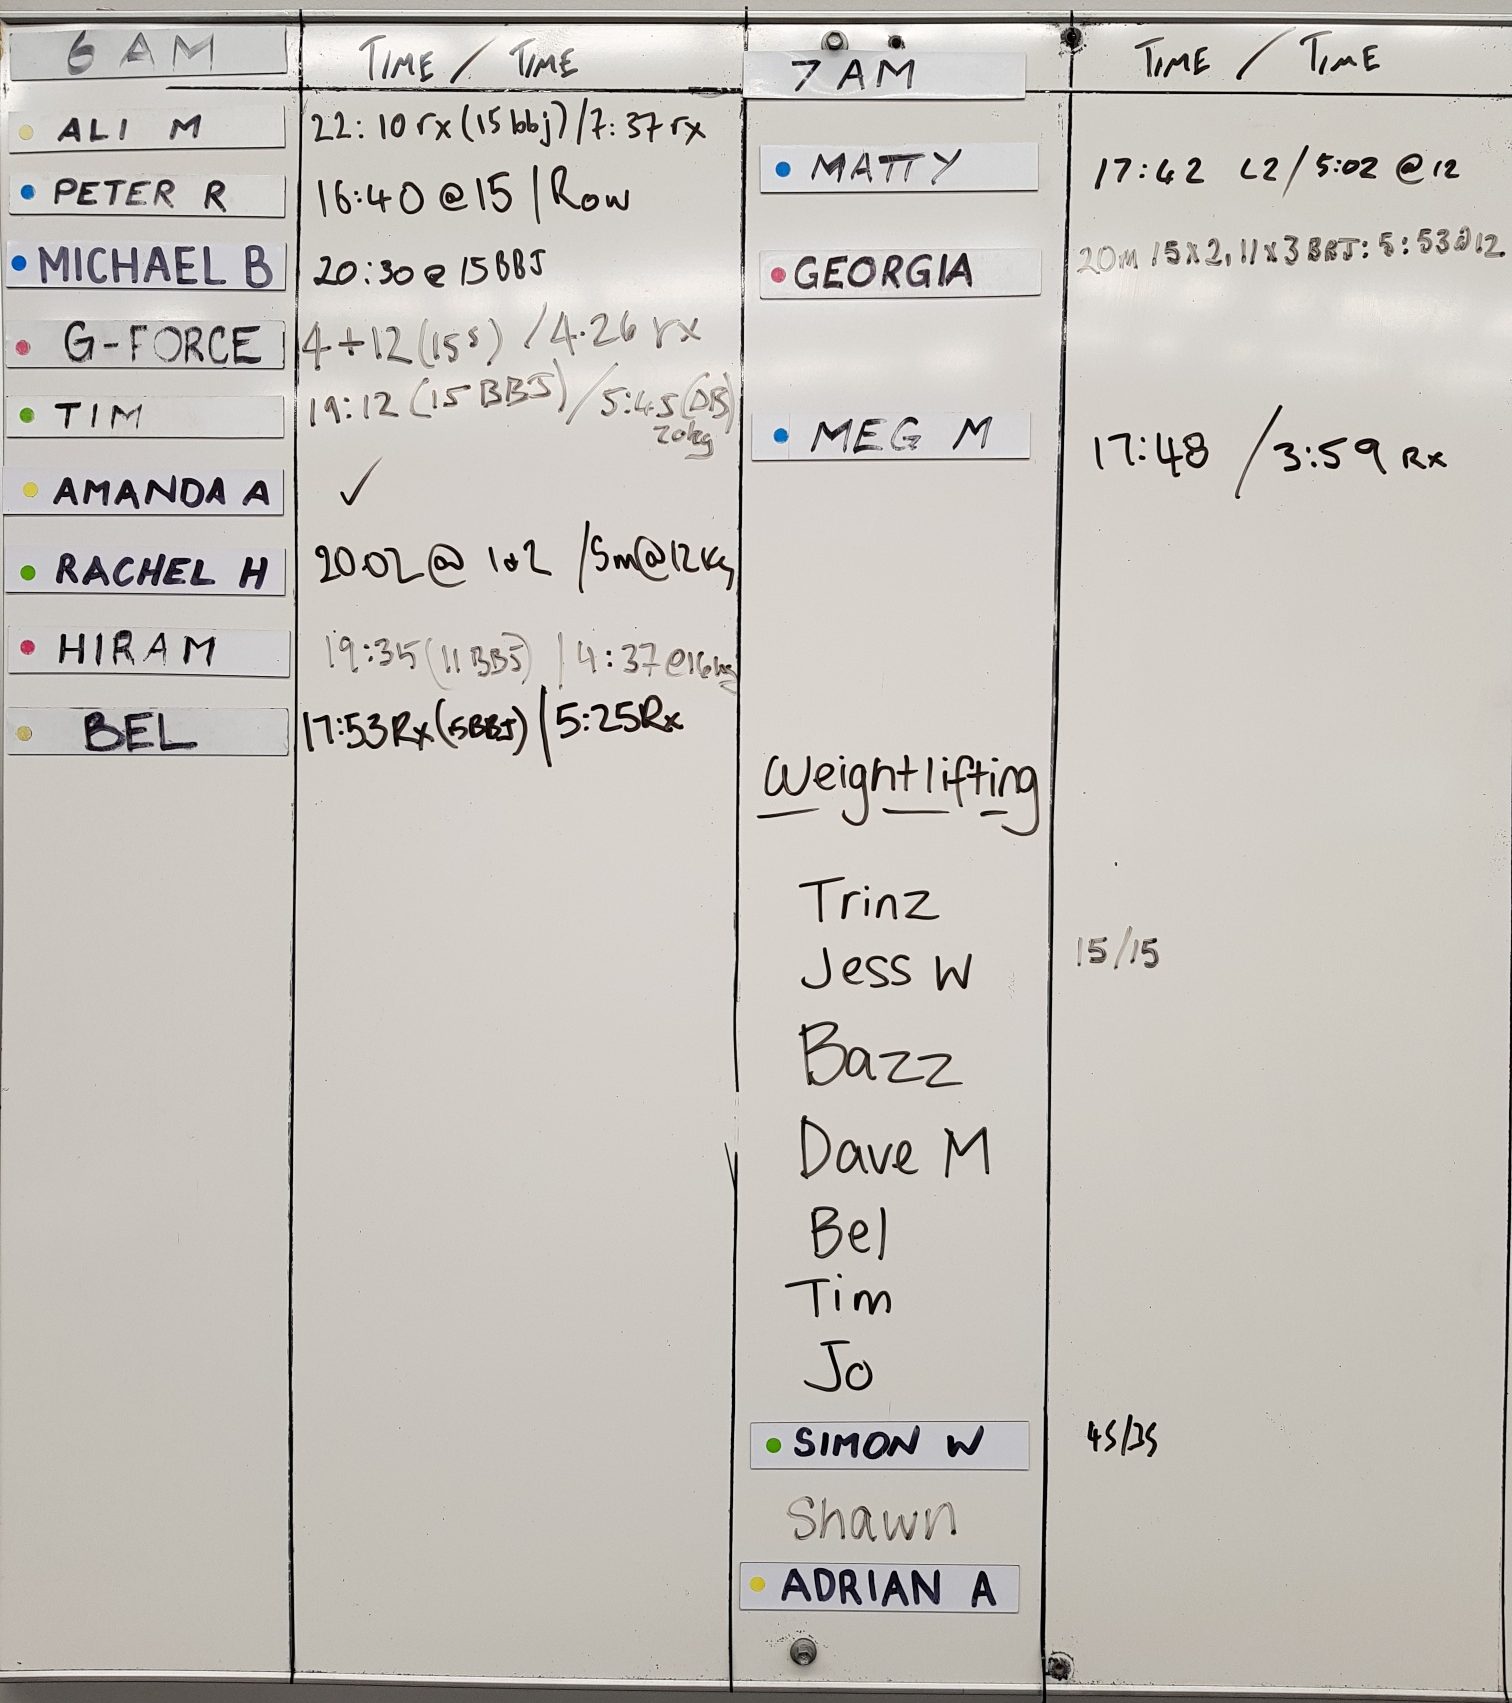 6 AM TIME / TIME
ALI M 22:10 rx (15 bbj) / 7:37 rx
PETER R 16:40 @ 15 | Row
MICHAEL B 20:30 @ 15 BBJ
G-FORCE 4+12 (15s) / 4.26 rx
TIM 19:12 (15 BBJ) / 5:45 (DB)
20kg
AMANDA A ✓
RACHEL H 20:02 @ 1+2 / 5m @ 12kg
HIRAM 19:35 (11 BBJ) | 4:37 @ 16kg
BEL 17:53 Rx (15BBJ) | 5:25 Rx
7 AM TIME / TIME
MATTY 17:42 L2 / 5:02 @ 12
GEORGIA 20m 15x2, 11x3 BBJ: 5:53 @ 12
MEG M 17:48 / 3:59 Rx
Weightlifting
Trinz
Jess W 15/15
Bazz
Dave M
Bel
Tim
Jo
SIMON W 45/35
Shawn
ADRIAN A